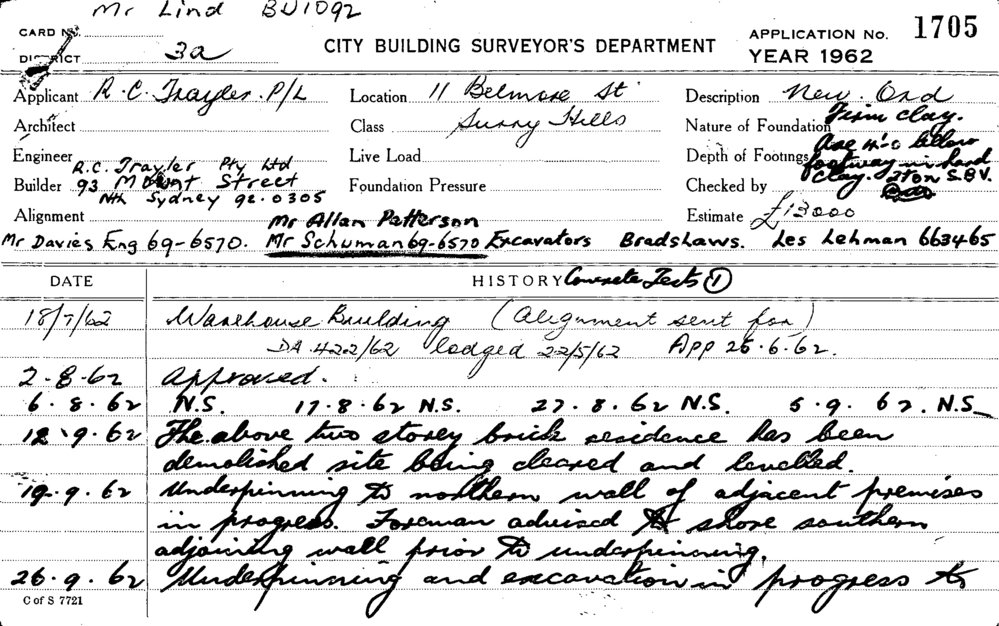 Mr Lind BU1092
CARD No. APPLICATION No. 1705
DISTRICT 3a CITY BUILDING SURVEYOR'S DEPARTMENT YEAR 1962
Applicant R.C. Trayler. P/L Location 11 Belmore St Description New. Ord
Architect Class Surry Hills Nature of Foundation Firm clay.
Engineer Live Load Depth of Footings footway in hard
R.C. Trayler Pty Ltd clay. 2 ton S.B.V.
Builder 93 Mount Street Foundation Pressure Checked by
Nth Sydney 92.0305
Alignment Mr Allan Patterson Estimate £13000
Mr Davies Eng 69-6570. Mr Schuman 69-6570 Excavators Bradshaws. Les Lehman 663465
DATE HISTORY Concrete Tests 1
18/7/62 Warehouse Building (Alignment sent for)
DA 422/62 lodged 22/5/62 App 25.6.62.
2-8-62 Approved.
6.8.62 N.S. 17-8-62 N.S. 27.8.62 N.S. 5.9.62. N.S.
12.9.62 The above two storey brick residence has been
demolished site being cleared and levelled.
19.9.62 Underpinning to northern wall of adjacent premises
in progress. Foreman advised to shore southern
adjoining wall prior to underpinning.
26.9.62 Underpinning and excavation in progress to
C of S 7721